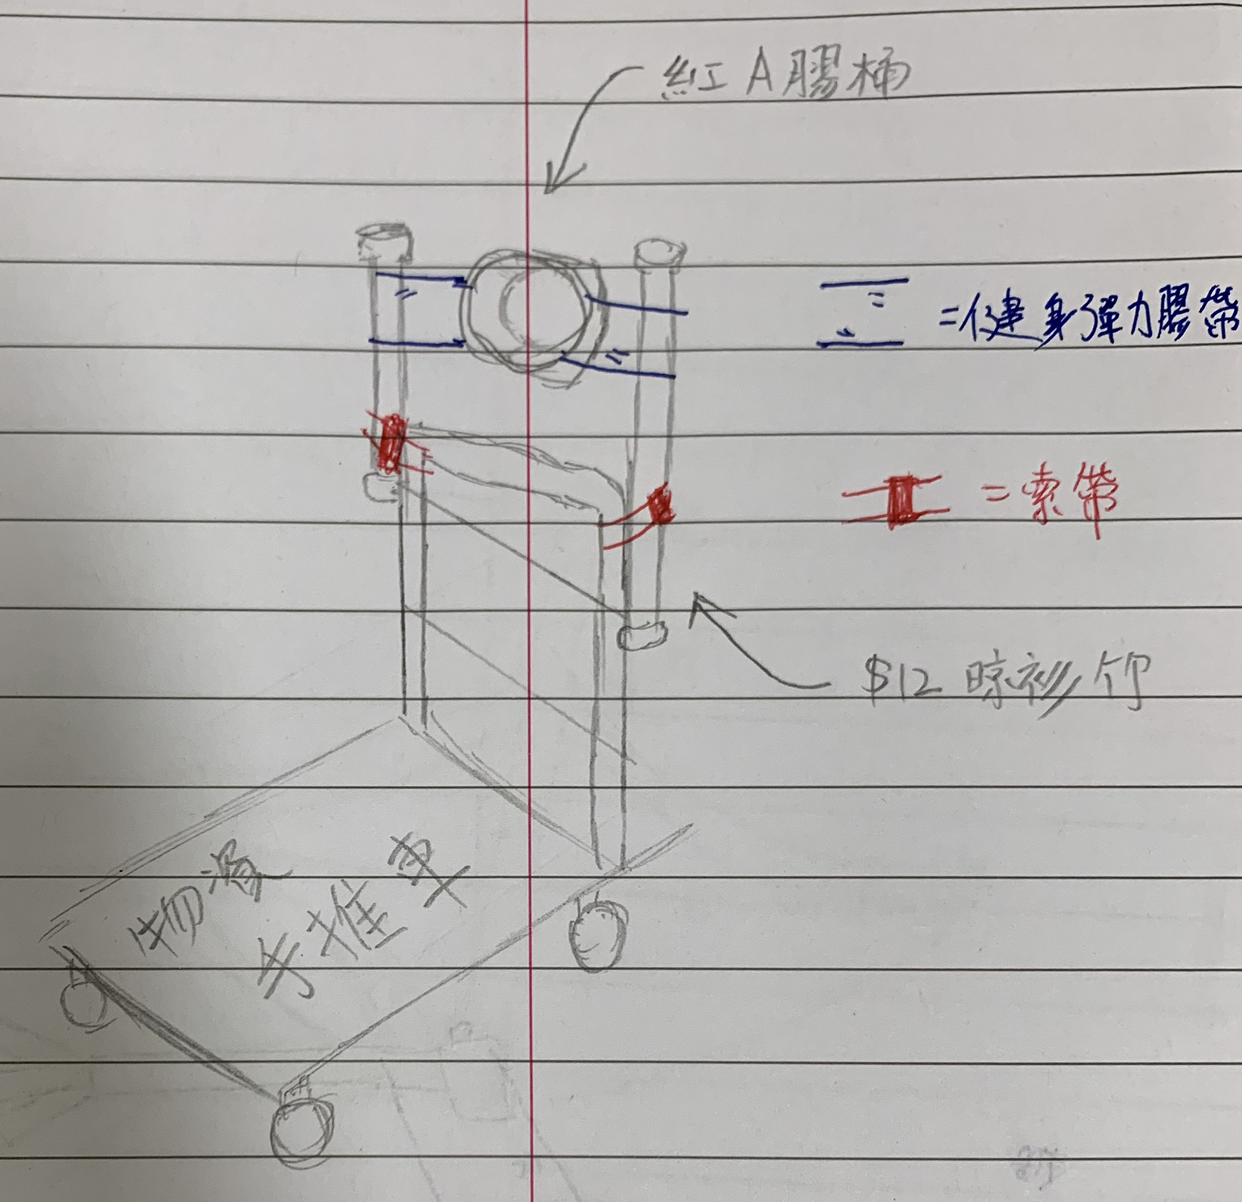 紅A膠桶
=健身彈力膠帶
=索帶
$12 晾衫竹
物資
手推車